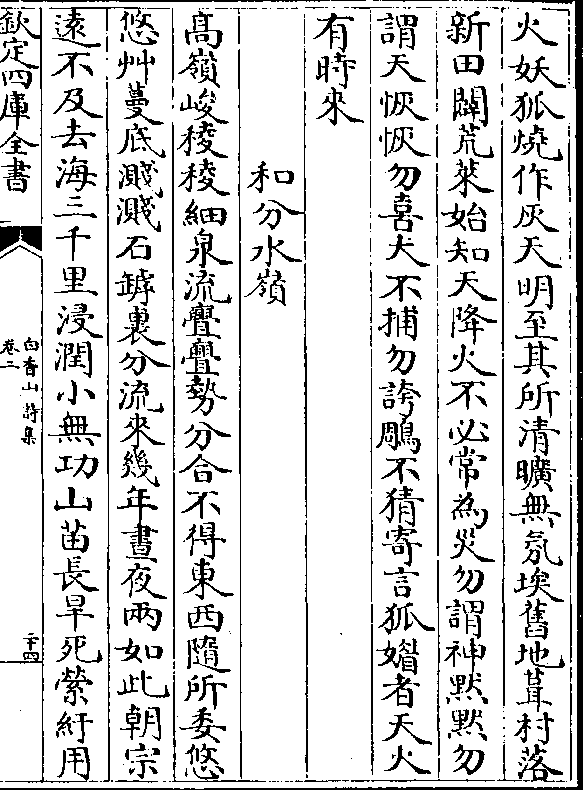 火妖狐燒作灰天明至其所清曠無氛埃舊地葺村落
新田闢荒萊始知天降火不必常為災勿謂神黙黙勿
謂天恢恢勿喜犬不捕勿誇鵰不猜寄言狐媚者天火
有時來
和分水嶺
髙嶺峻稜稜細泉流亹亹勢分合不得東西隨所委悠
悠艸蔓底濺濺石罅裏分流來幾年晝夜兩如此朝宗
逺不及去海三千里浸潤小無功山苗長旱死縈紆用
欽定四庫全書
白香山詩集
卷二
二十四